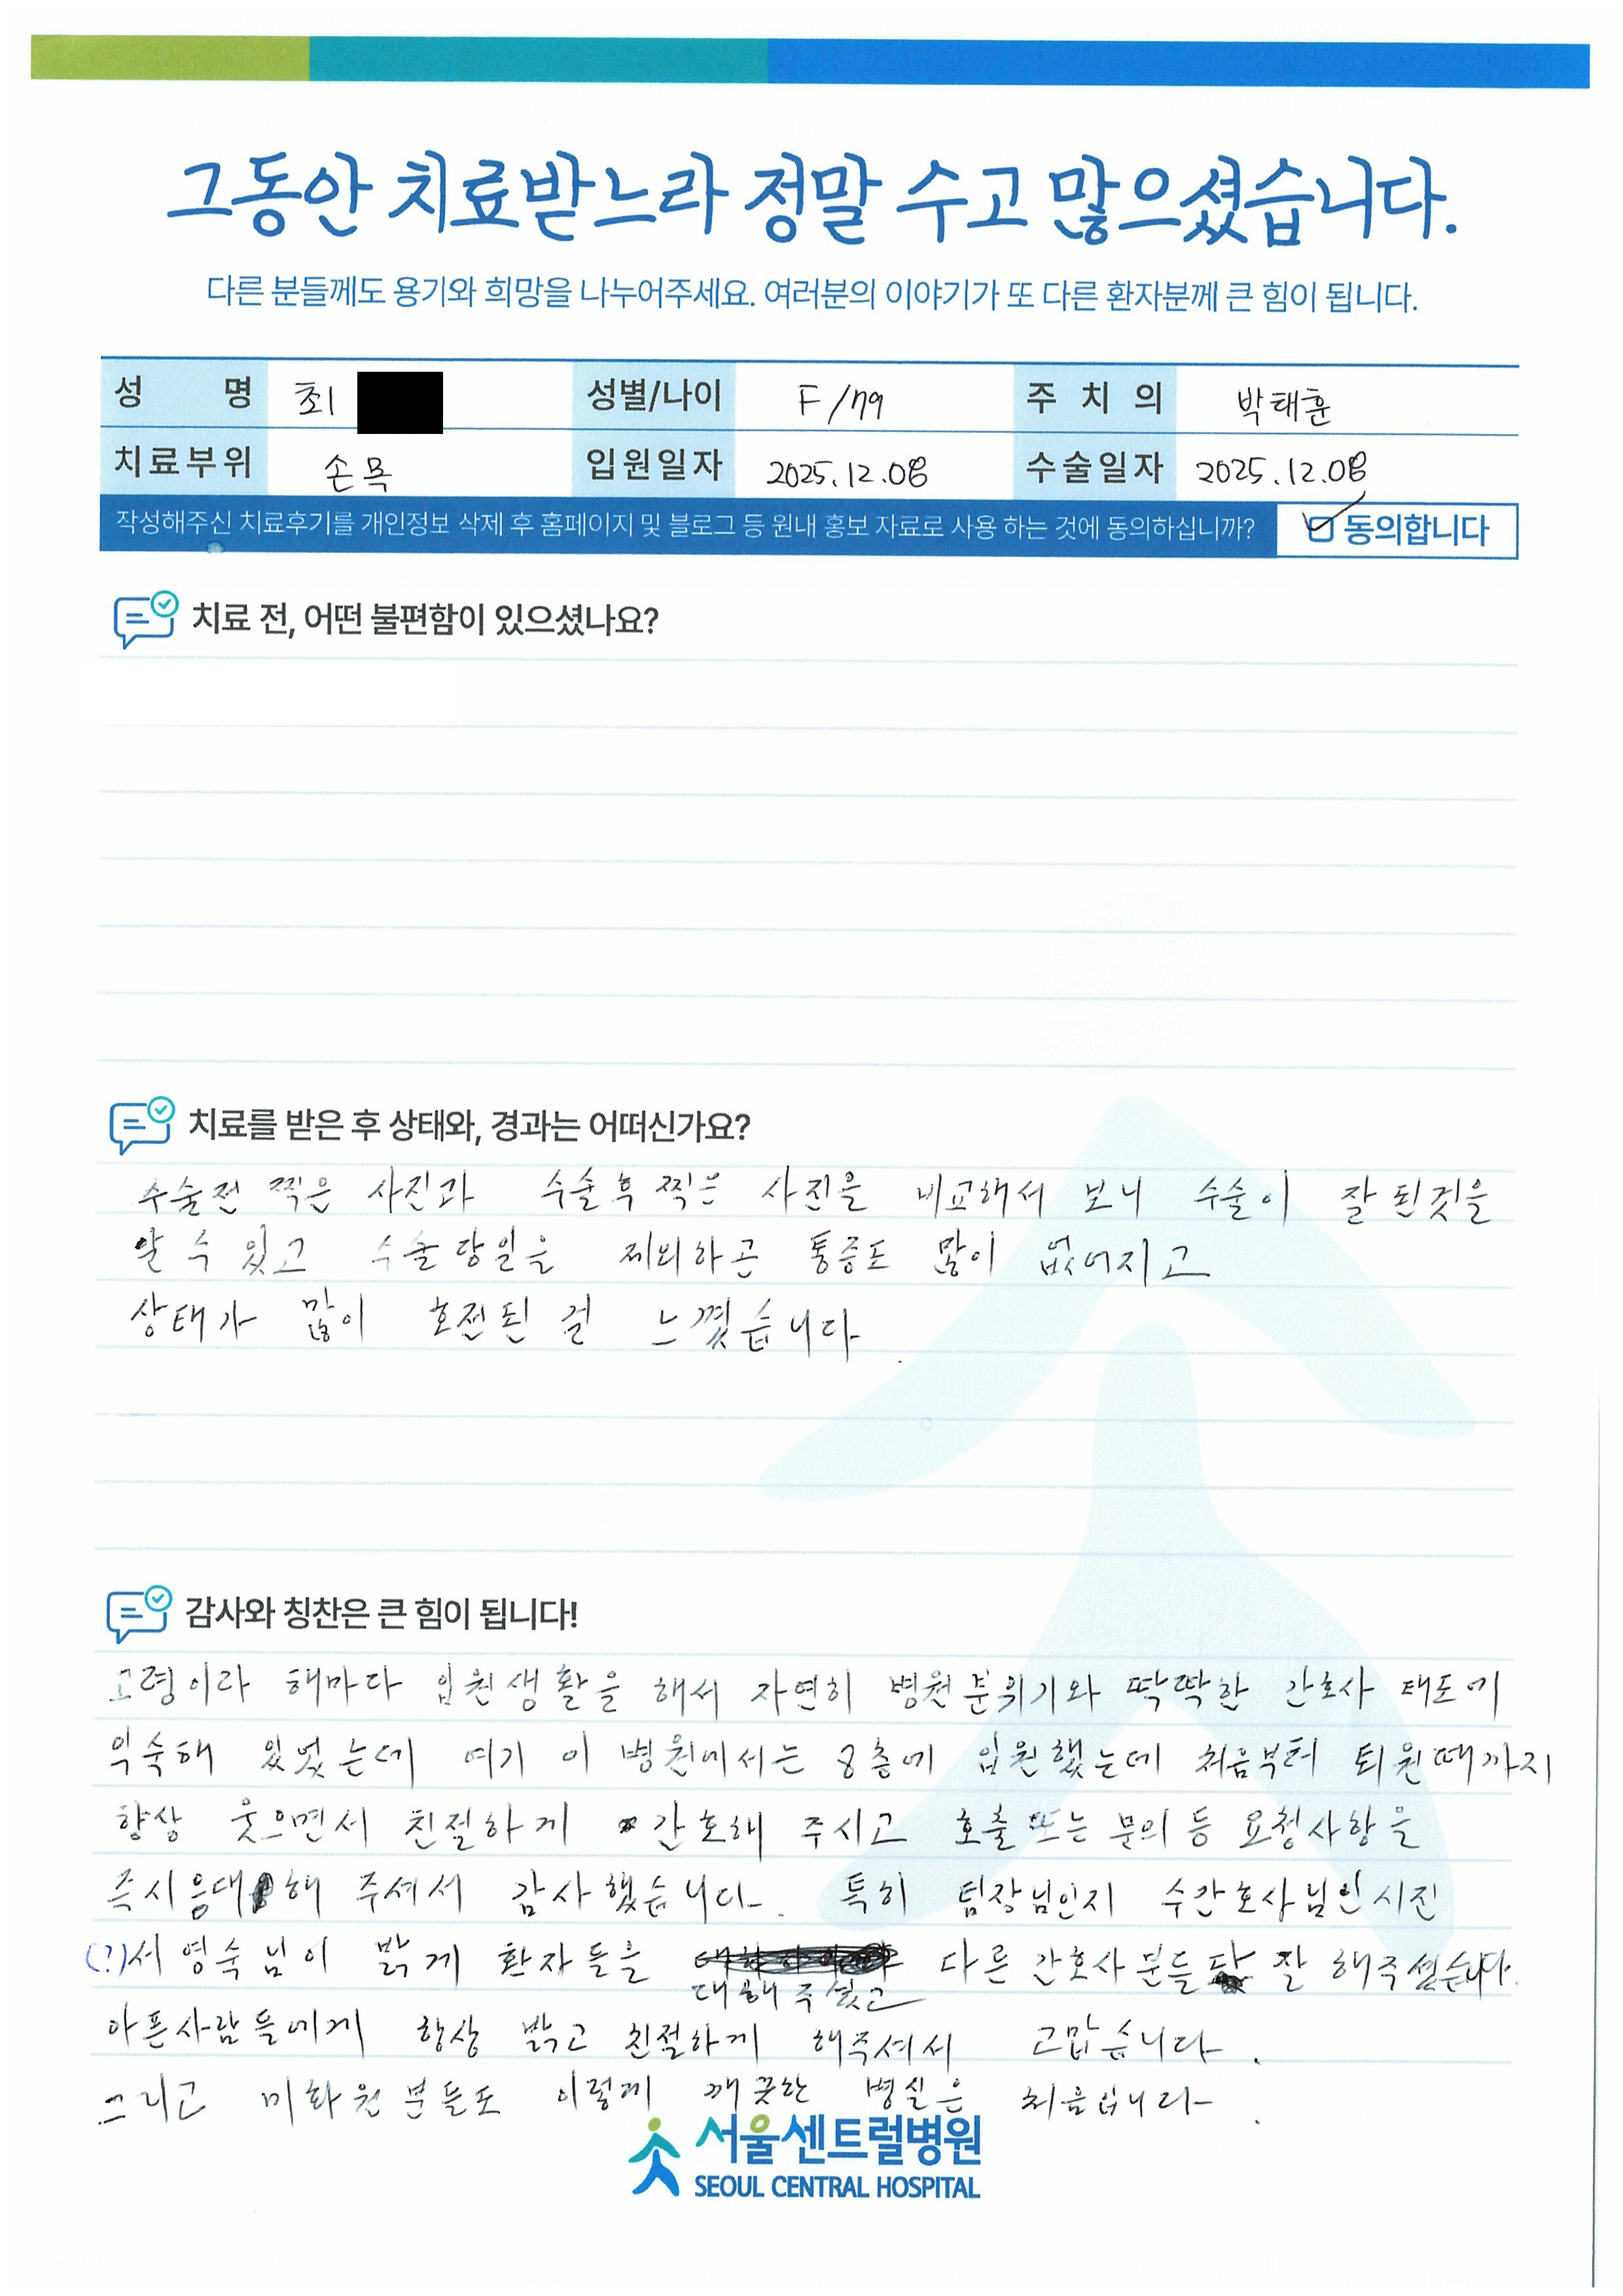 그동안 치료받느라 정말 수고 많으셨습니다.
다른 분들께도 용기와 희망을 나누어주세요. 여러분의 이야기가 또 다른 환자분께 큰 힘이 됩니다.
성 명 최 성별/나이 F/79 주 치 의 박태훈
치료부위 손목 입원일자 2025.12.08 수술일자 2025.12.08
작성해주신 치료후기를 개인정보 삭제 후 홈페이지 및 블로그 등 원내 홍보 자료로 사용 하는 것에 동의하십니까? 동의합니다
치료 전, 어떤 불편함이 있으셨나요?
치료를 받은 후 상태와, 경과는 어떠신가요?
수술전 찍은 사진과 수술후 찍은 사진을 비교해서 보니 수술이 잘 된것을
알 수 있고 수술당일을 제외하곤 통증도 많이 없어지고
상태가 많이 호전된 걸 느꼈습니다.
감사와 칭찬은 큰 힘이 됩니다!
고령이라 해마다 입원생활을 해서 자연히 병원분위기와 딱딱한 간호사 태도에
익숙해 있었는데 여기 이 병원에서는 8층에 입원했는데 처음부터 퇴원때까지
항상 웃으면서 친절하게 간호해 주시고 호출 또는 문의 등 요청사항을
즉시 응대해 주셔서 감사했습니다. 특히 팀장님인지 수간호사님인시진
(?)서영숙님이 밝게 환자들을 대해 주셨고 다른 간호사분들 잘 해주셨습니다.
아픈사람들에게 항상 밝고 친절하게 해주셔서 고맙습니다.
그리고 미화원분들도 이렇게 깨끗한 병실은 처음입니다.
서울센트럴병원
SEOUL CENTRAL HOSPITAL